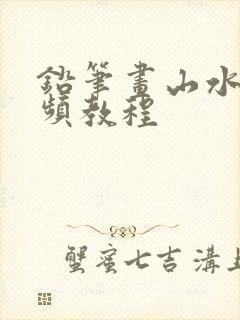 鉛筆畫山水
頻教程
蟹蜜七吉溝上